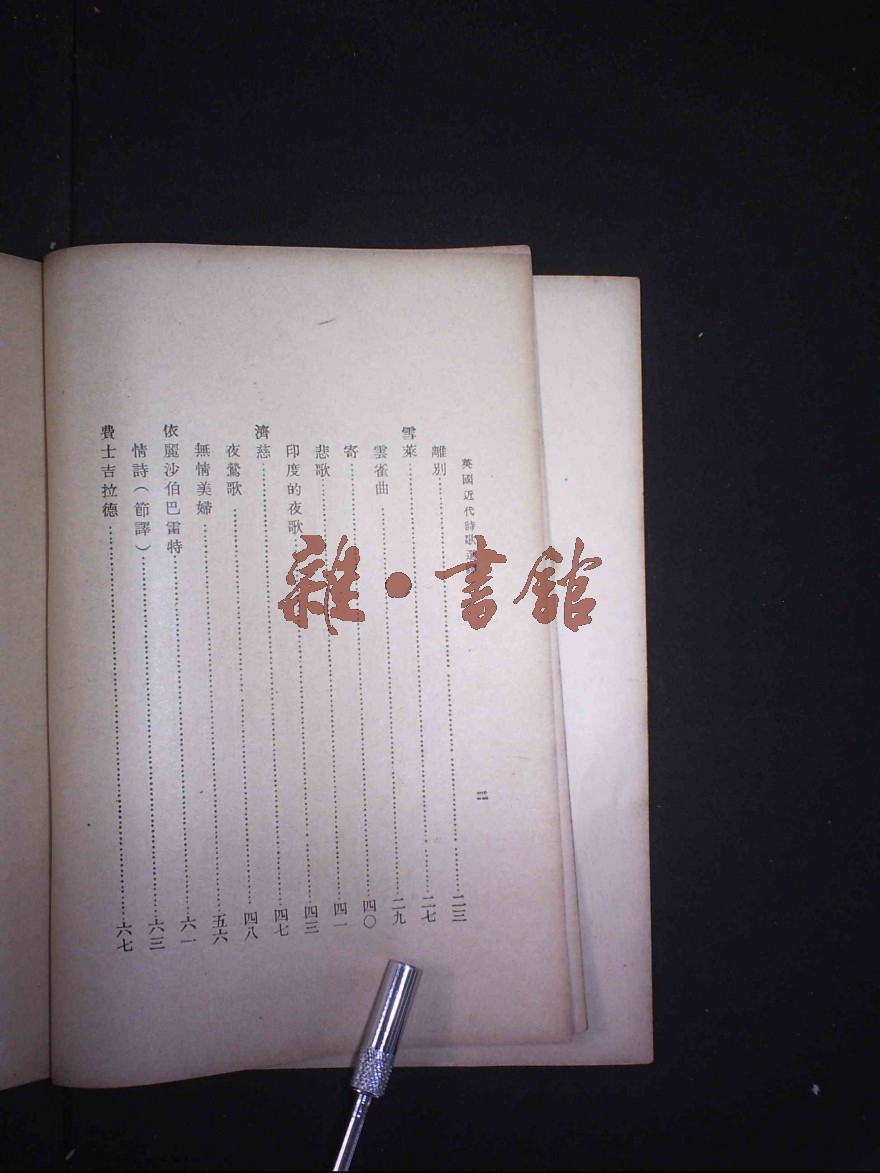 英國近代詩歌選
離別……二三
雪萊……二七
雲雀曲……二九
寄……四〇
悲歌……四一
印度的夜歌……四三
濟慈……四七
夜鶯歌……四八
無情美婦……五六
依麗沙伯巴雷特……六一
情詩（節譯）……六三
費士吉拉德……六七
雜·書館